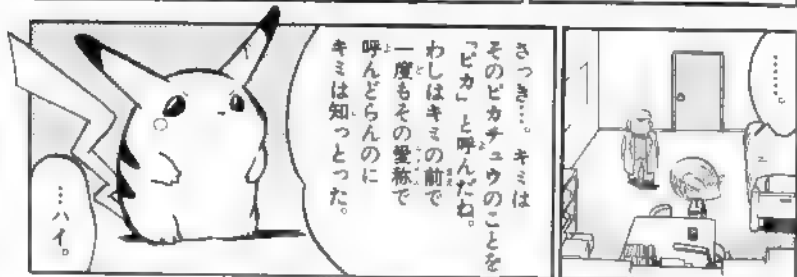 ………。
さっき…。キミは
そのピカチュウのことを
「ピカ」と呼んだね。
わしはキミの前で
一度もその愛称で
呼んどらんのに
キミは知っとった。
…ハイ。